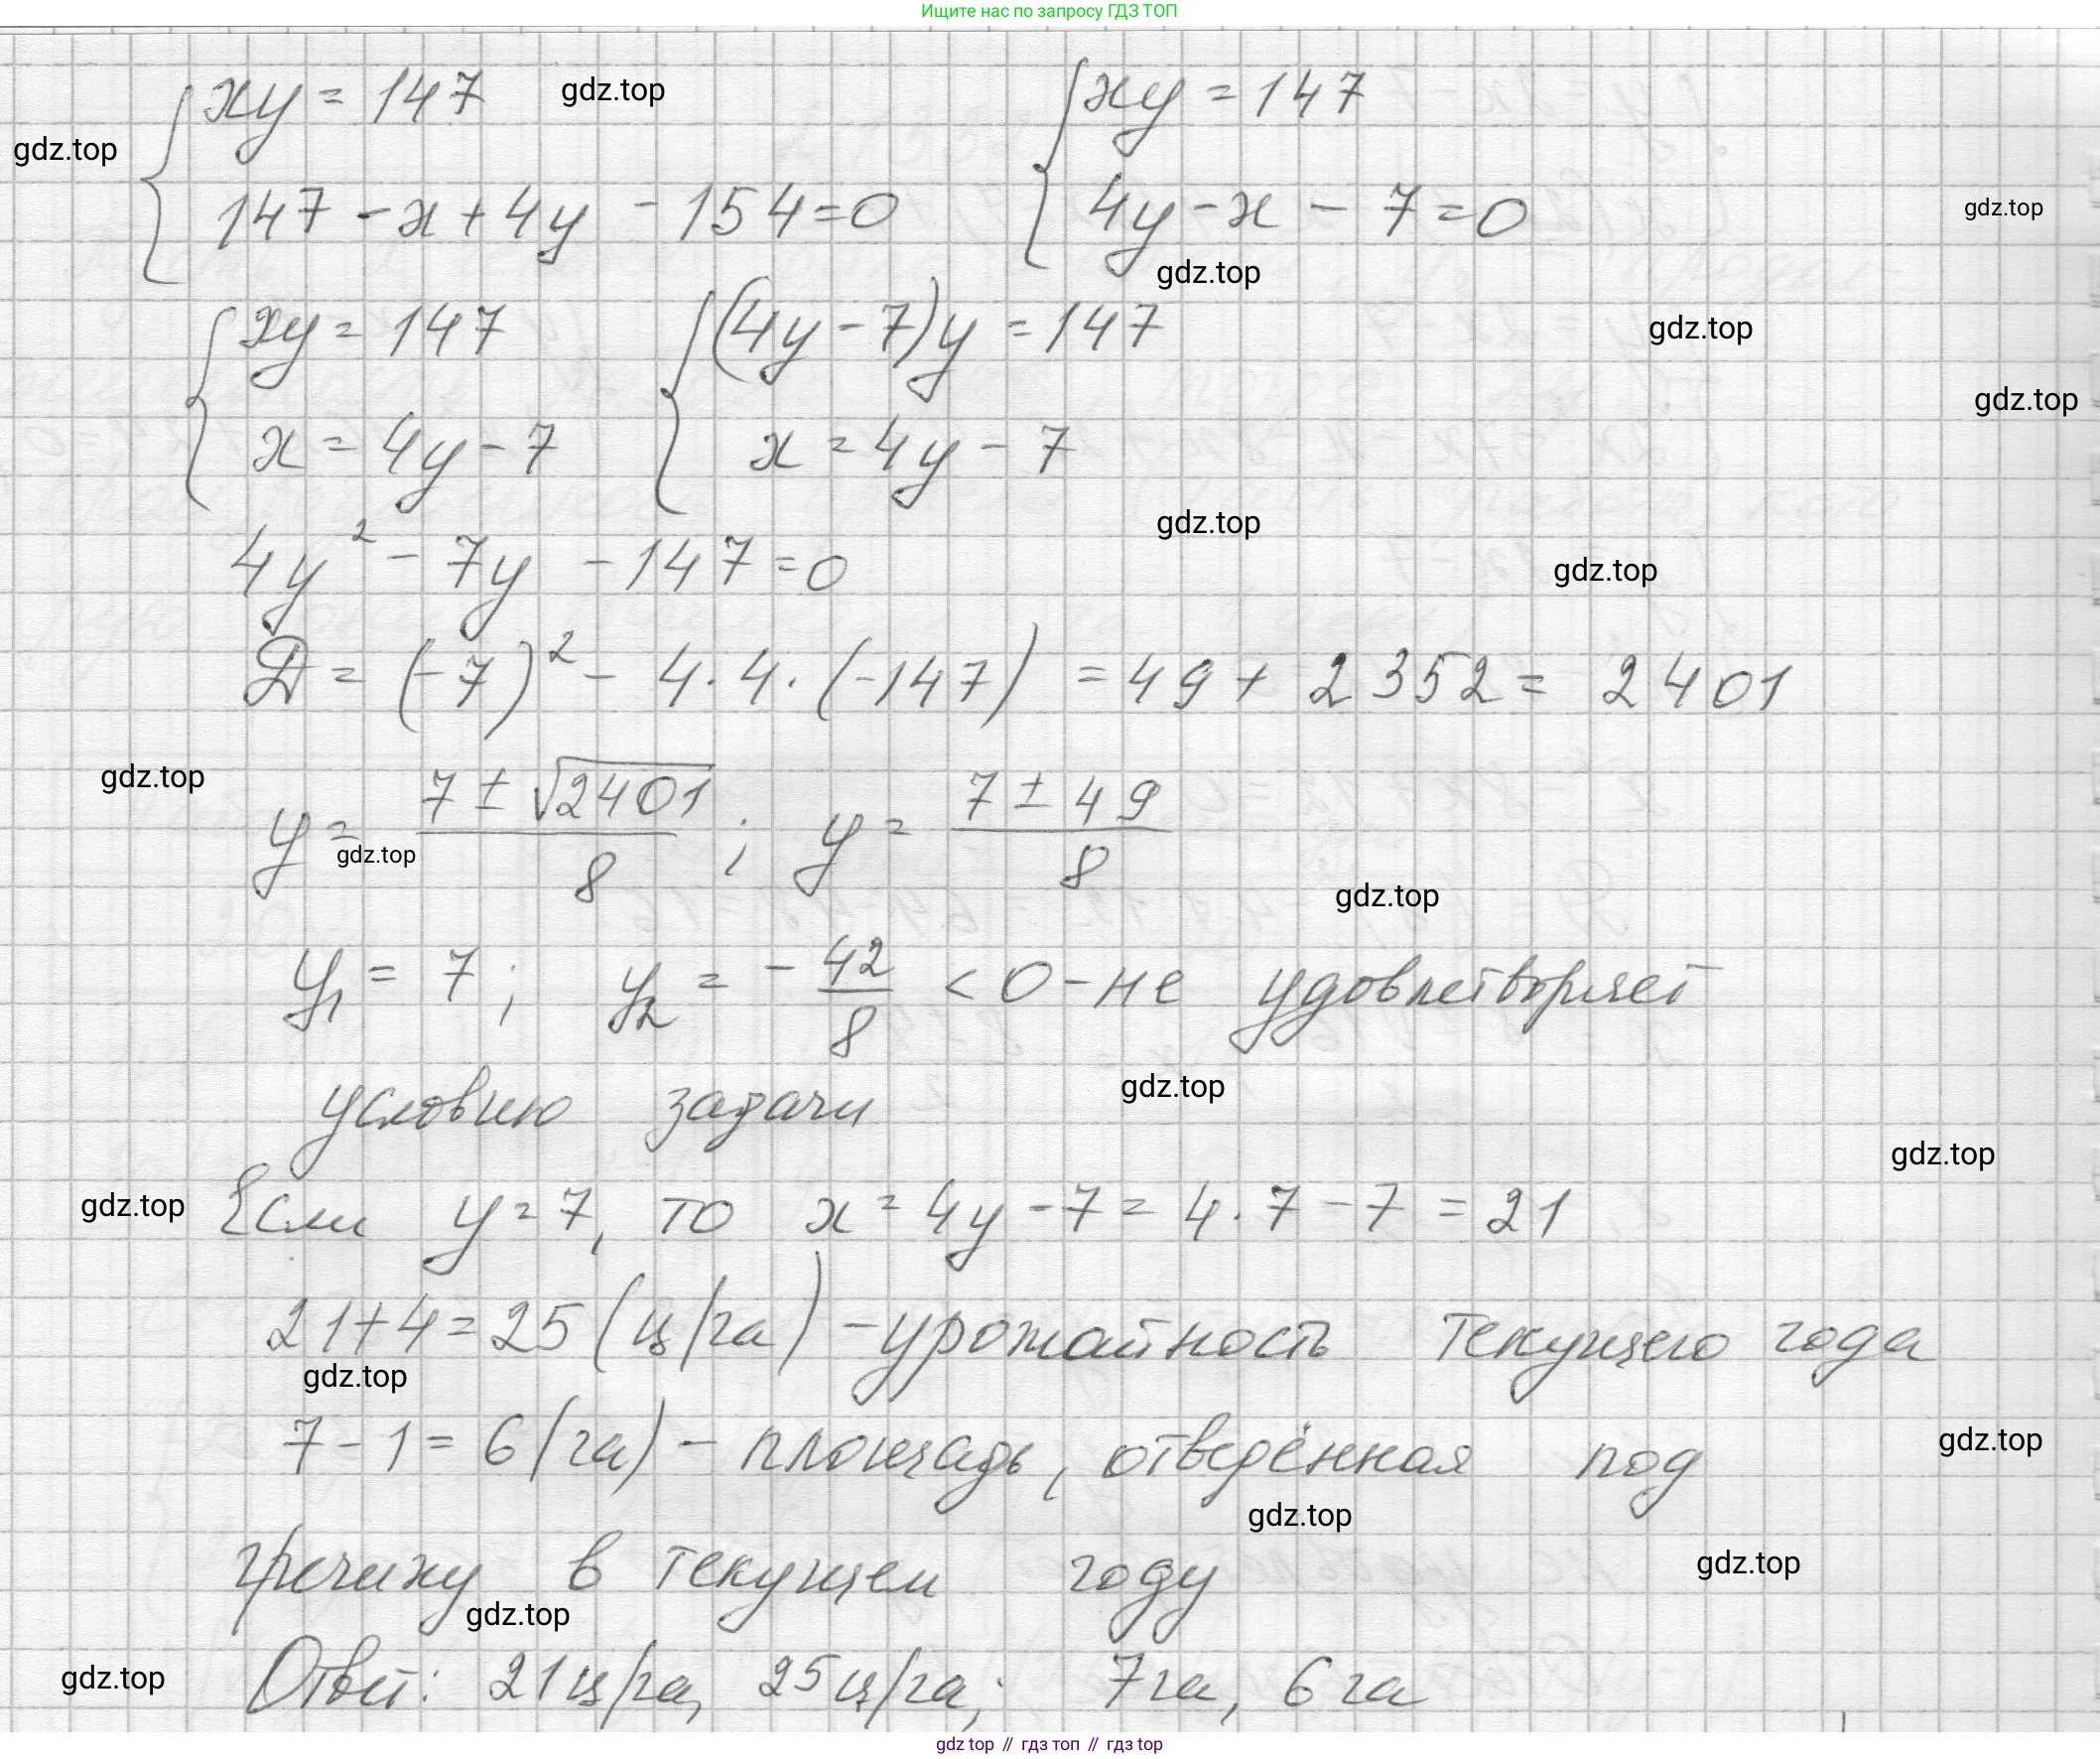 Ищите нас по запросу ГДЗ ТОП
xy = 147 gdz.top xy = 147
gdz.top
147 - x + 4y - 154 = 0 4y - x - 7 = 0 gdz.top
gdz.top
xy = 147 (4y - 7)y = 147 gdz.top
gdz.top
x = 4y - 7 x = 4y - 7
gdz.top
4y² - 7y - 147 = 0 gdz.top
Д = (-7)² - 4·4·(-147) = 49 + 2352 = 2401
gdz.top
y = (7 ± √2401)/8 ; y = (7 ± 49)/8
gdz.top
gdz.top
y₁ = 7 ; y₂ = -42/8 < 0 - не удовлетворяет
условию задачи gdz.top
gdz.top
gdz.top Если y = 7, то x = 4y - 7 = 4·7 - 7 = 21
21+4=25 (ц/га) - урожайность текущего года
gdz.top
7 - 1 = 6 (га) - площадь, отведённая под gdz.top
gdz.top
гречиху в текущем году gdz.top
gdz.top
gdz.top Ответ: 21 ц/га, 25 ц/га; 7 га, 6 га
gdz top // гдз топ // гдз top